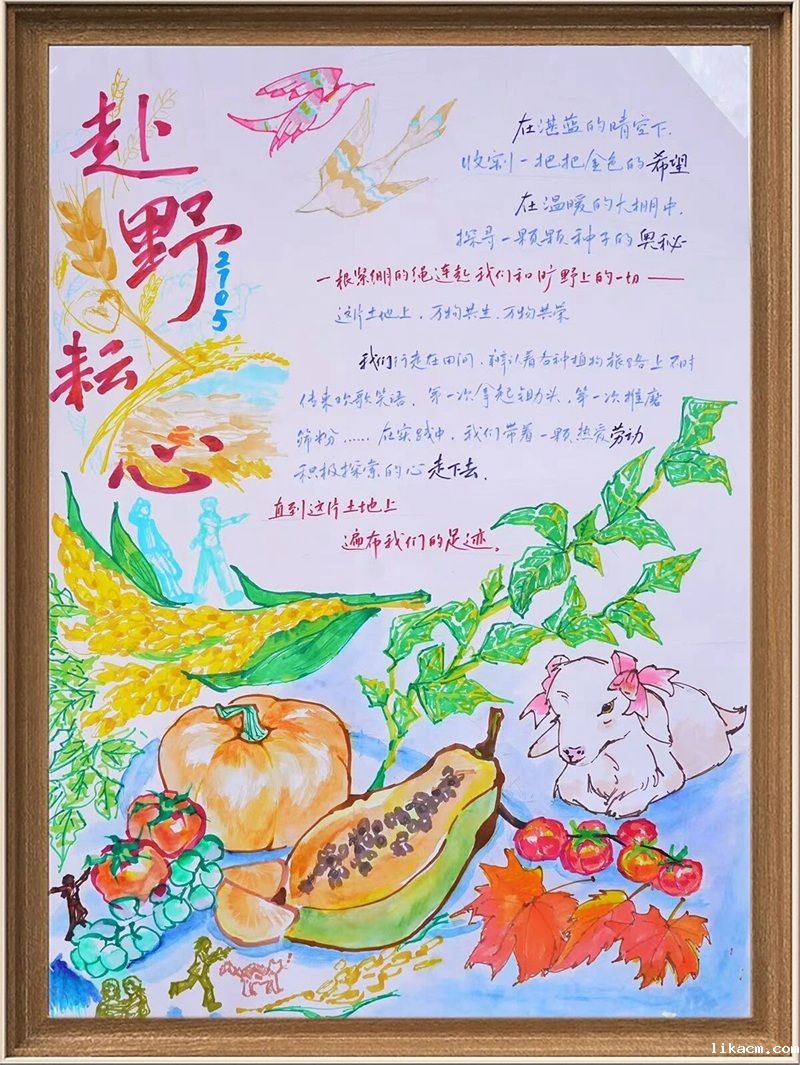 赴野
2705
耘心
在湛蓝的晴空下，
收割一把把金色的希望
在温暖的大棚中，
探寻一颗颗种子的奥秘
一根紧绷的绳连起我们和旷野上的一切——
这片土地上，万物共生，万物共荣
我们行走在田间，辨认着各种植物 旅路上不时
传来欢歌笑语。第一次拿起锄头，第一次推磨
筛粉……在实践中，我们带着一颗热爱劳动
积极探索的心 走下去，
直到这片土地上
遍布我们的足迹。
likacm.com